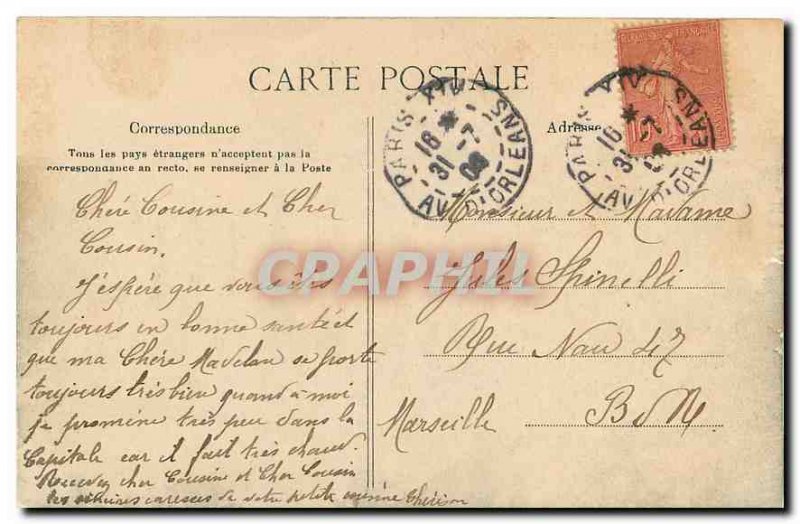 CARTE POSTALE
Correspondance
Tous les pays étrangers n'acceptent pas la
correspondance au recto, se renseigner à la Poste
Adresse
PARIS XIV
16 *
31 - 7
08
AV. D'ORLEANS
PARIS XIV
16 *
31 - 7
08
AV. D'ORLEANS
Chère Cousine et Cher
Cousin.
J'espère que vous êtes
toujours en bonne santé et
que ma Chère Madelon se porte
toujours très bien quand à moi
je promène très peu dans la
Capitale car il fait très chaud.
Recevez cher Cousine et Cher Cousin
les caresses de votre petite cousine
Monsieur et Madame
Jules Spinelli
Rue Nau 47
Marseille B d R.
CPAPHIL